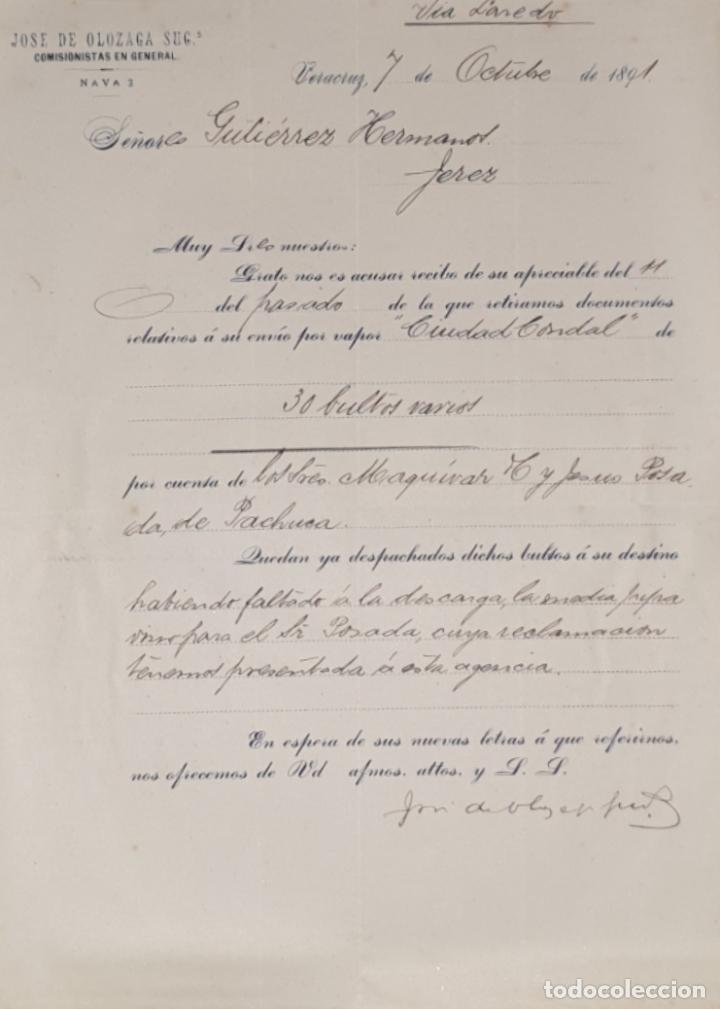 Via Laredo
JOSE DE OLOZAGA SUC.ˢ
COMISIONISTAS EN GENERAL.
NAVA 3
Veracruz, 7 de Octubre de 1891.
Señores Gutiérrez Hermanos.
Jerez
Muy Sres nuestros:
Grato nos es acusar recibo de su apreciable del 11
del pasado de la que retiramos documentos
relativos á su envío por vapor "Ciudad Condal" de
30 bultos varios
por cuenta de los Sres. Maquívar y Jesus Posa
da, de Pachuca.
Quedan ya despachados dichos bultos á su destino
habiendo faltado á la descarga, la media pipa
vino para el Sr Posada, cuya reclamacion
tenemos presentada á esta agencia.
En espera de sus nuevas letras á que referirnos,
nos ofrecemos de Vd afmos. attos. y S. S.
José de Olozaga
todocoleccion